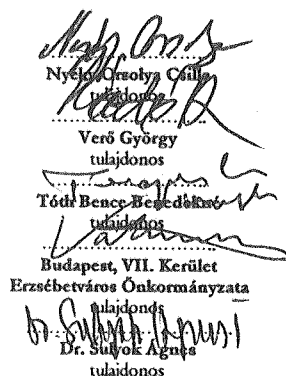 Nyéky Orsolya Csilla
tulajdonos
Verő György
tulajdonos
Tóth Bence Benedekné
tulajdonos
Budapest, VII. Kerület
Erzsébetváros Önkormányzata
tulajdonos
dr Sulyok Ágnes
Dr. Sulyok Ágnes
tulajdonos